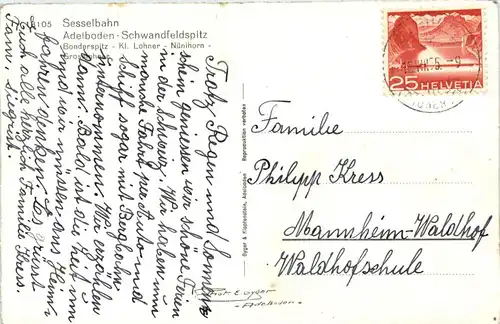 105 Sesselbahn
Adelboden - Schwandfeldspitz
Bonderspitz - Kl. Lohner - Nünihorn -
Trotz Regen und Sonnen-
schein geniessen wir schöne Ferien
in der Schweiz. Wir haben nun
manche Fahrt per Auto und
Schiff sogar mit Bergbahn
unternommen. Wir erzählen
dann. Bald ist die Zeit um
und wir müssen ans Heim-
fahren denken. Es grüsst
Euch alle herzlich Familie Kress.
Fam. Siegrist.
Gyger & Klopfenstein, Adelboden Reproduktion verboten
25 HELVETIA
Familie
Philipp Kress
Mannheim-Waldhof
Waldhofschule
Phot. E. Gyger
Adelboden